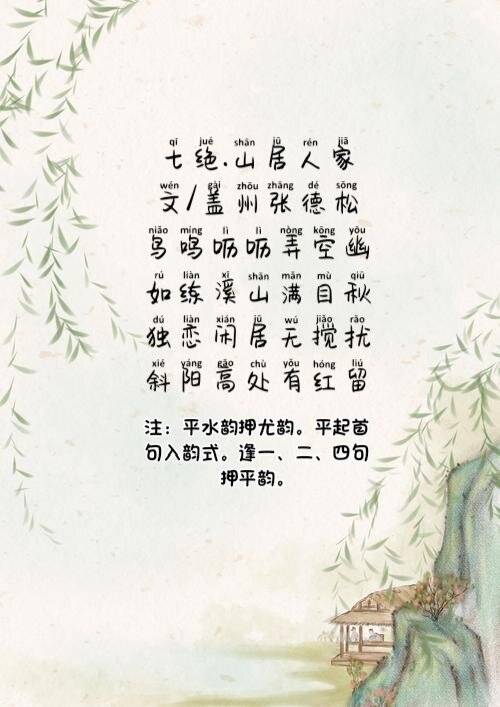 qī jué shān jū rén jiā
七绝.山居人家
wén gài zhōu zhāng dé sōng
文/盖州张德松
niǎo míng lì lì nòng kōng yōu
鸟鸣呖呖弄空幽
rú liàn xī shān mǎn mù qiū
如练溪山满目秋
dú liàn xián jū wú jiǎo rǎo
独恋闲居无搅扰
xié yáng gāo chù yǒu hóng liú
斜阳高处有红留
注：平水韵押尤韵。平起首
句入韵式。逢一、二、四句
押平韵。